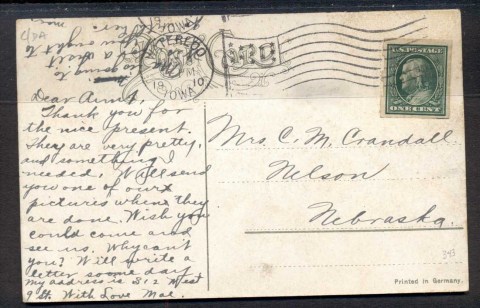 Dear Aunt,
Thank you for
the nice present.
They are very pretty,
and something I
needed. Will send
you one of our
pictures when they
are done. Wish you
could come and
see us. Why cant
you? Will write a
letter soome day
my address is 312 West
9 St. With Love Mae.
WATERLOO
IOWA
10
U.S. POSTAGE
ONE CENT
Mrs. C. M. Crandall.
Nelson
Nebraska.
343
Printed in Germany.